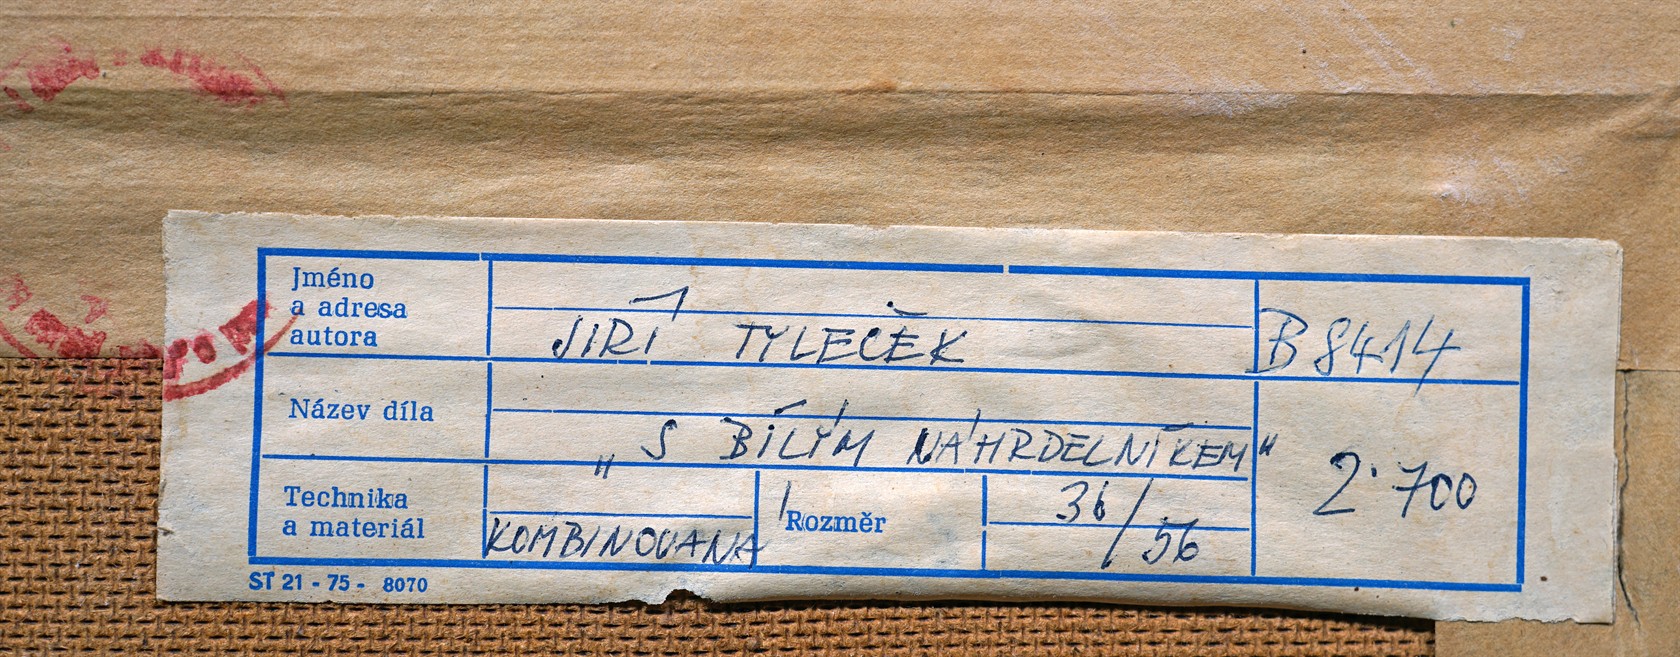 Jméno
a adresa
autora
JIŘÍ TYLEČEK
B 8414
Název díla
„S BÍLÝM NÁHRDELNÍKEM"
2.700
Technika
a materiál
KOMBINOVANÁ
Rozměr
36/56
ST 21 - 75 - 8070